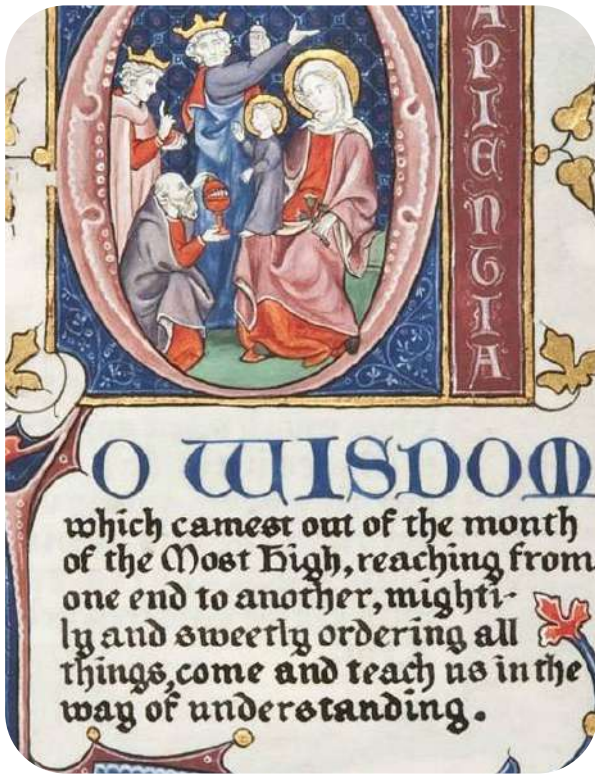 O
APIENTIA
O WISDOM
which camest out of the mouth
of the Most High, reaching from
one end to another, mighti-
ly and sweetly ordering all
things, come and teach us in the
way of understanding.